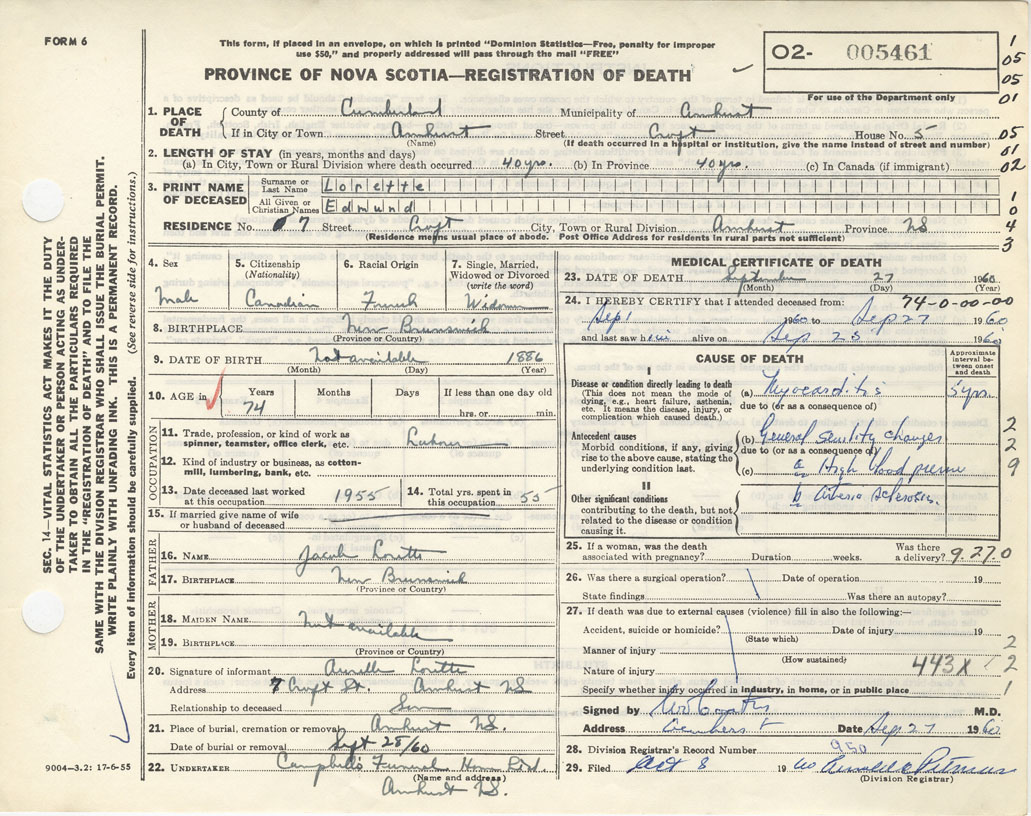 FORM 6
This form, if placed in an envelope, on which is printed "Dominion Statistics—Free, penalty for improper
use $50," and properly addressed will pass through the mail "FREE"
PROVINCE OF NOVA SCOTIA—REGISTRATION OF DEATH
02- 005461
For use of the Department only
1
05
05
01
05
01
02
1
0
4
3
1. PLACE OF DEATH
County of Cumberland Municipality of Amherst
If in City or Town Amherst Street Croft House No. 5
(Name) (If death occurred in a hospital or institution, give the name instead of street and number)
2. LENGTH OF STAY (in years, months and days)
(a) In City, Town or Rural Division where death occurred 40 yrs. (b) In Province 40 yrs. (c) In Canada (if immigrant)
3. PRINT NAME OF DECEASED
Surname or Last Name Lorette
All Given or Christian Names Edmund
RESIDENCE No. 7 Street Croft City, Town or Rural Division Amherst Province NS
(Residence means usual place of abode. Post Office Address for residents in rural parts not sufficient)
SEC. 14—VITAL STATISTICS ACT MAKES IT THE DUTY
OF THE UNDERTAKER OR PERSON ACTING AS UNDER-
TAKER TO OBTAIN ALL THE PARTICULARS REQUIRED
IN THE "REGISTRATION OF DEATH" AND TO FILE THE
SAME WITH THE DIVISION REGISTRAR WHO SHALL ISSUE THE BURIAL PERMIT.
WRITE PLAINLY WITH UNFADING INK. THIS IS A PERMANENT RECORD.
Every item of information should be carefully supplied. (See reverse side for instructions.)
4. Sex
Male
5. Citizenship
(Nationality)
Canadian
6. Racial Origin
French
7. Single, Married,
Widowed or Divorced
(write the word)
Widower
8. BIRTHPLACE New Brunswick
(Province or Country)
9. DATE OF BIRTH Not available 1886
(Month) (Day) (Year)
10. AGE in
Years Months Days If less than one day
74 hrs. or min.
OCCUPATION
11. Trade, profession, or kind of work as
spinner, teamster, office clerk, etc. Labour
12. Kind of industry or business, as cotton-
mill, lumbering, bank, etc.
13. Date deceased last worked
at this occupation 1955
14. Total yrs. spent in
this occupation 55
15. If married give name of wife
or husband of deceased
FATHER
16. NAME Jacob Lorette
17. BIRTHPLACE New Brunswick
(Province or Country)
MOTHER
18. MAIDEN NAME Not available
19. BIRTHPLACE
(Province or Country)
20. Signature of informant Lorette
Address 7 Croft St. Amherst NS
Relationship to deceased Son
21. Place of burial, cremation or removal Amherst NS.
Date of burial or removal Sept 28/60
22. UNDERTAKER Campbell's Funeral Home Ltd.
(Name and address)
Amherst NS.
9004—3.2: 17-6-55
MEDICAL CERTIFICATE OF DEATH
23. DATE OF DEATH September 27 1960
(Month) (Day) (Year)
24. I HEREBY CERTIFY that I attended deceased from:
74-0-00-00
Sep 1 1960 to Sep 27 1960
and last saw him alive on Sep 25 1960
CAUSE OF DEATH
Approximate interval between onset and death
I
Disease or condition directly leading to death
(This does not mean the mode of
dying, e.g., heart failure, asthenia,
etc. It means the disease, injury, or
complication which caused death.)
(a) Myocarditis 5 yrs.
due to (or as a consequence of)
Antecedent causes
Morbid conditions, if any, giving
rise to the above cause, stating the
underlying condition last.
(b) General Senility changes
due to (or as a consequence of)
(c) a High blood pressure
II
Other significant conditions
contributing to the death, but not
related to the disease or condition
causing it.
b Arterio Sclerosis.
2
2
9
25. If a woman, was the death
associated with pregnancy? Duration weeks. Was there
a delivery? 9.27.0
26. Was there a surgical operation? Date of operation 19
State findings Was there an autopsy?
27. If death was due to external causes (violence) fill in also the following:—
Accident, suicide or homicide? Date of injury 19
(State which)
Manner of injury
(How sustained)
Nature of injury 443X
2
2
1
Specify whether injury occurred in industry, in home, or in public place
Signed by M.D.
Address Amherst Date Sep 27 1960
28. Division Registrar's Record Number 950
29. Filed Oct 8 1960
(Division Registrar)